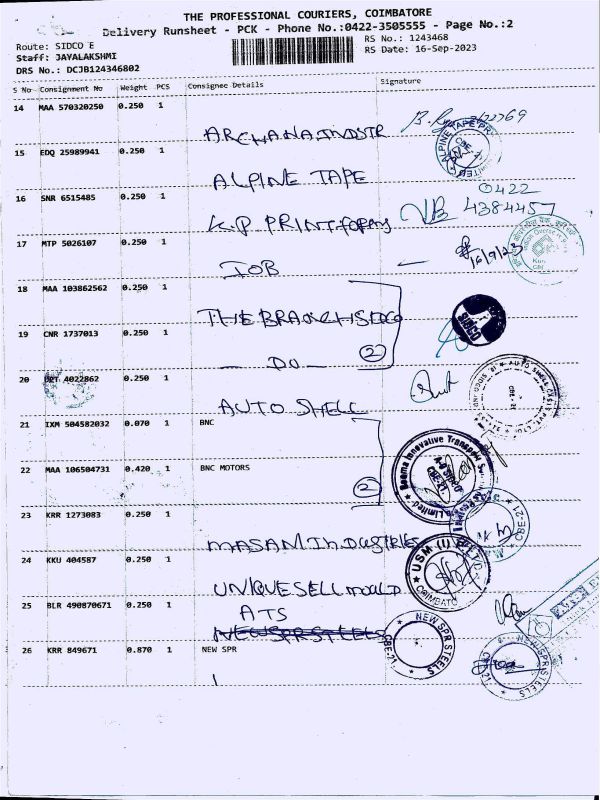 THE PROFESSIONAL COURIERS, COIMBATORE
Delivery Runsheet - PCK - Phone No.:0422-3505555 - Page No.:2
Route: SIDCO E
RS No.: 1243468
Staff: JAYALAKSHMI
RS Date: 16-Sep-2023
DRS No.: DCJB124346802
S No Consignment No Weight PCS Consignee Details Signature
14 MAA 570320250 0.250 1
ARCHANA INDSTR
15 EDQ 25989941 0.250 1
ALPINE TAPE
ALPINE TAPE
CBE
16 SNR 6515485 0.250 1
0422
K.P PRINTforms
4384457
17 MTP 5026107 0.250 1
IOB
16/9/23
18 MAA 103862562 0.250 1
THE BRANCH SIDCO
SIDCO
19 CNR 1737013 0.250 1
— DO — 2
20 4022862 0.250 1
AUTO SHELL
AUTO SHELL CASTS
CBE-21
21 IXM 504582032 0.070 1 BNC
Innovative Transport
22 MAA 106504731 0.420 1 BNC MOTORS
2
Limited
23 KRR 1273083 0.250 1
MASAM INDUSTRIES
CBE-21
24 KKU 404587 0.250 1
USM (I)
COIMBATO
UNIQUE SELL mould
25 BLR 490870671 0.250 1
ATS
NEW SPR STEELS
NEW SPR STEELS
CBE-21
26 KRR 849671 0.870 1 NEW SPR
NEW SPR STEELS
CBE-21